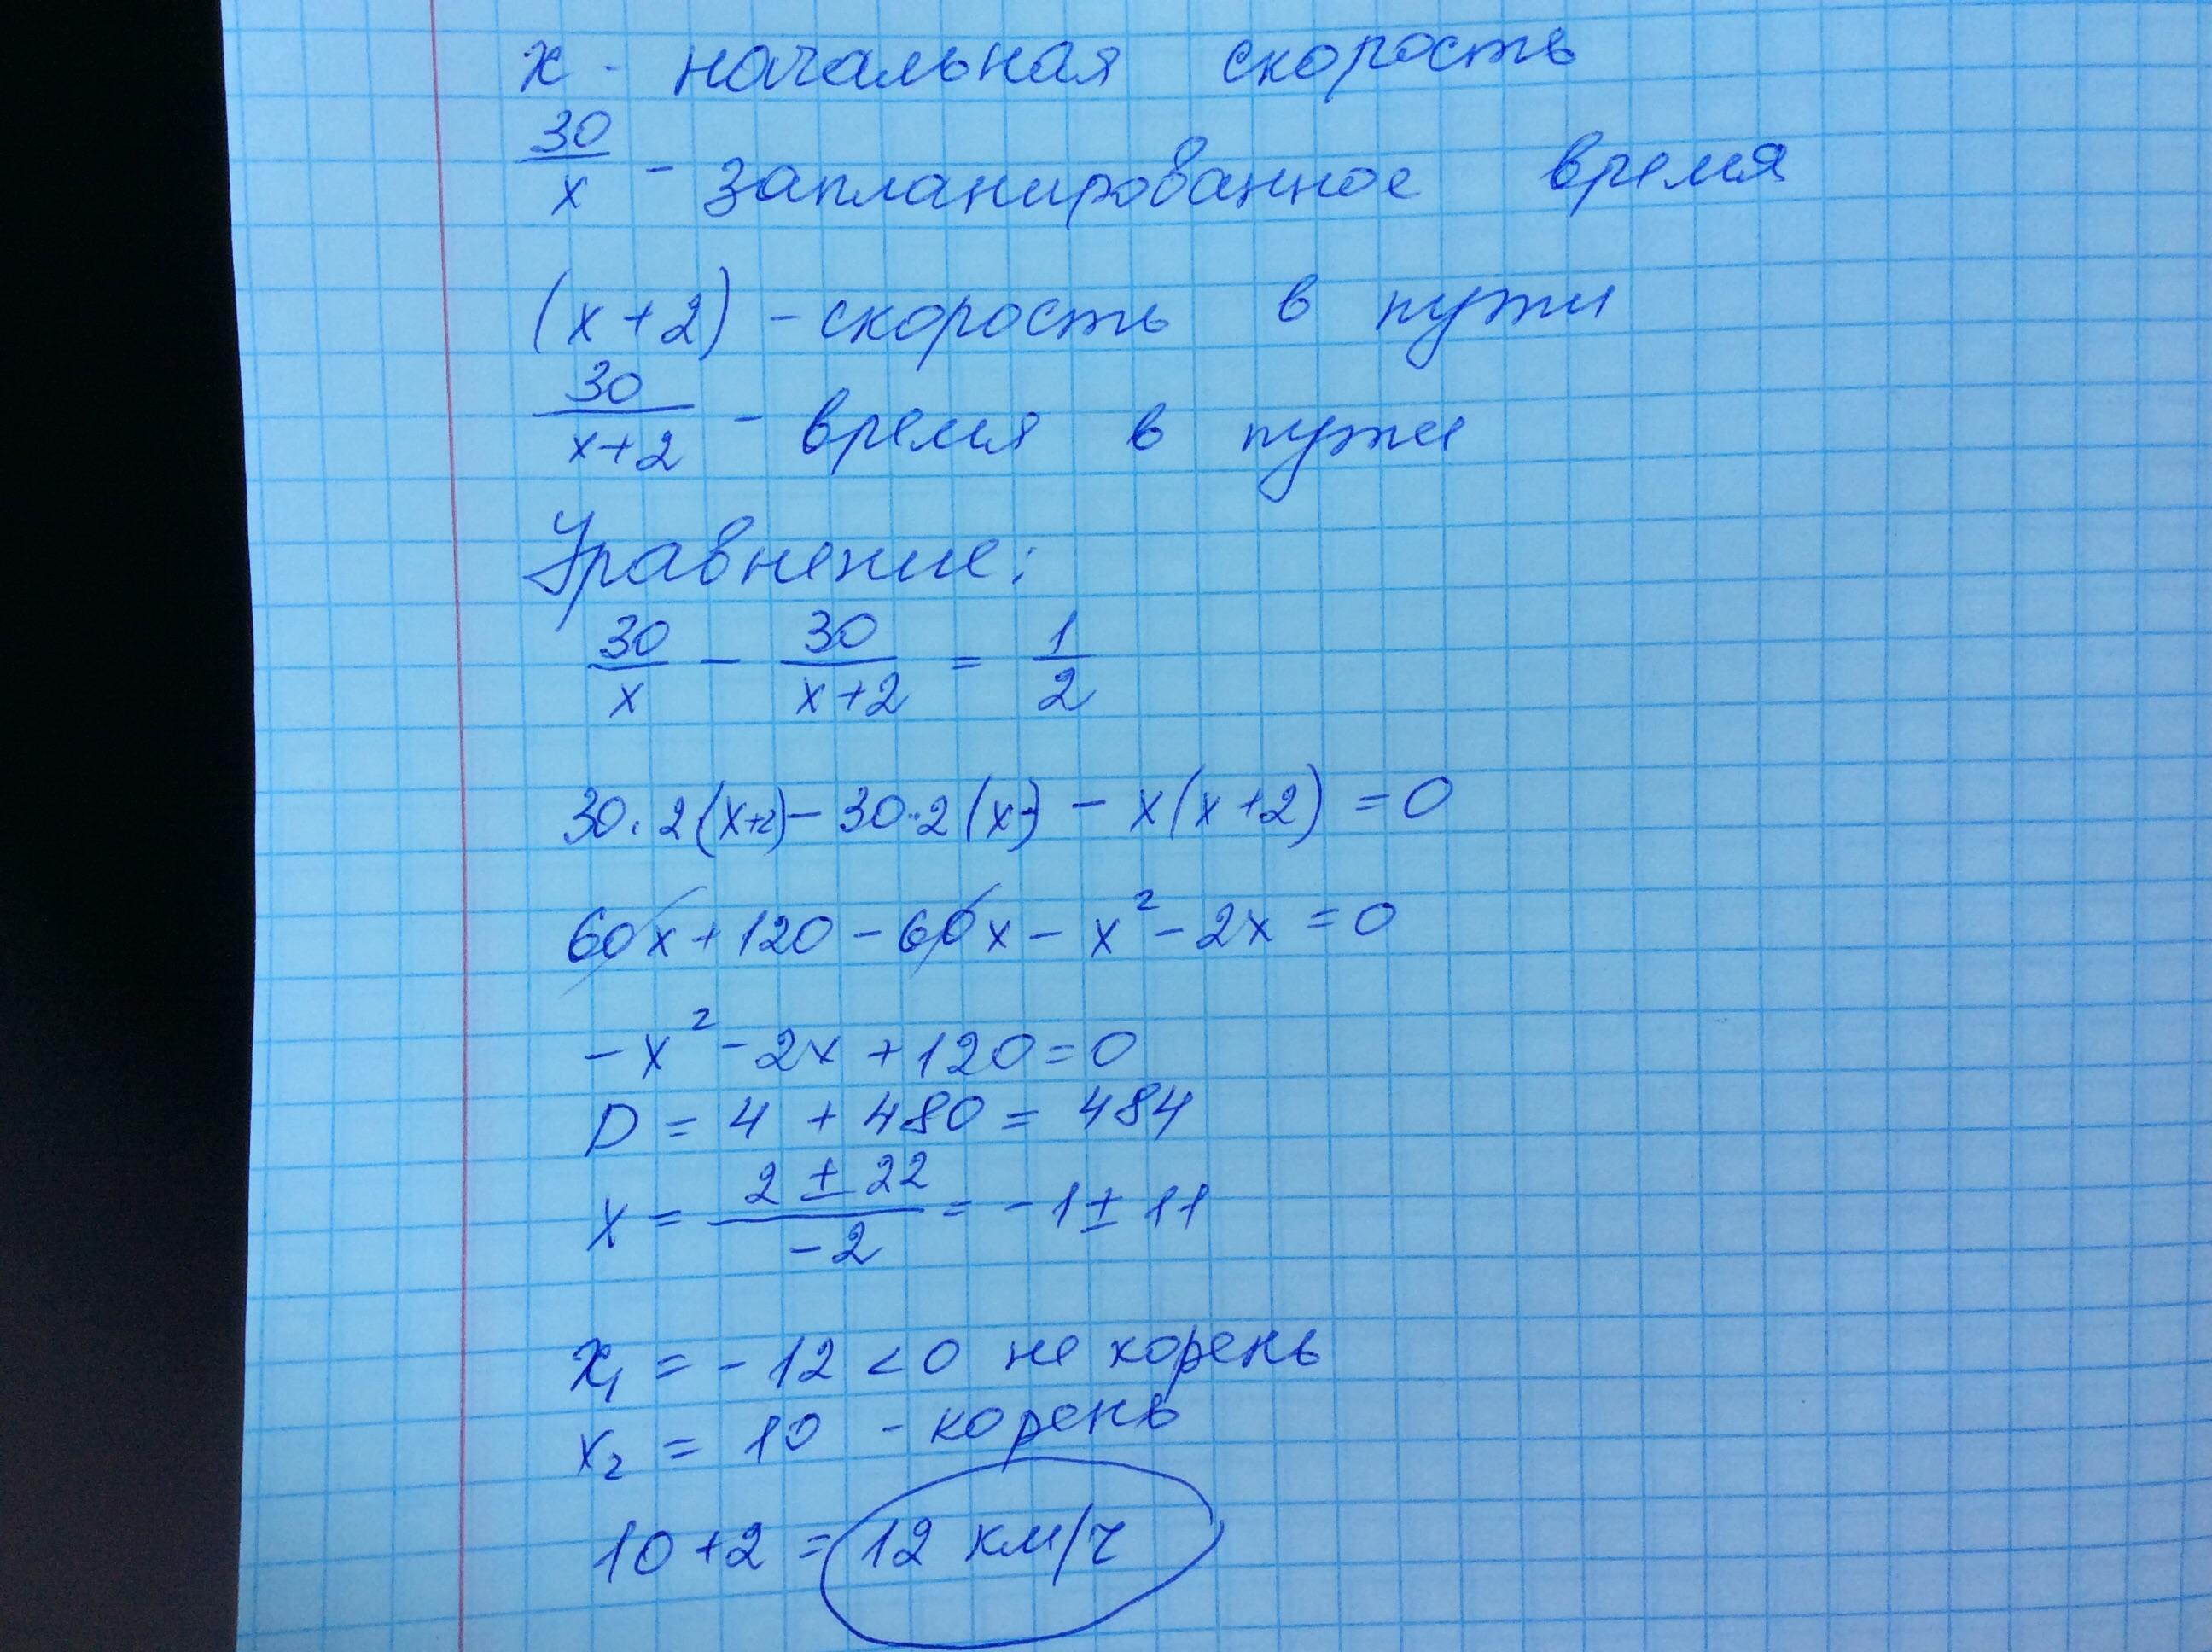 x - начальная скорость
30/x - запланированное время
(x+2) - скорость в пути
30/(x+2) - время в пути
Уравнение:
30/x - 30/(x+2) = 1/2
30·2(x+2) - 30·2(x) - x(x+2) = 0
60x + 120 - 60x - x² - 2x = 0
-x² - 2x + 120 = 0
D = 4 + 480 = 484
x = (2 ± 22)/(-2) = -1 ± 11
x₁ = -12 < 0 не корень
x₂ = 10 - корень
10 + 2 = 12 км/ч